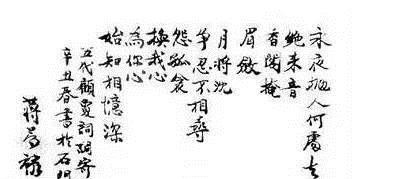 永夜抛人何處去
絕來音
香閣掩
眉斂
月將沈
爭忍不相尋
怨孤衾
換我心
為你心
始知相憶深
五代顧敻詞調寄
辛丑春書於石
蔣